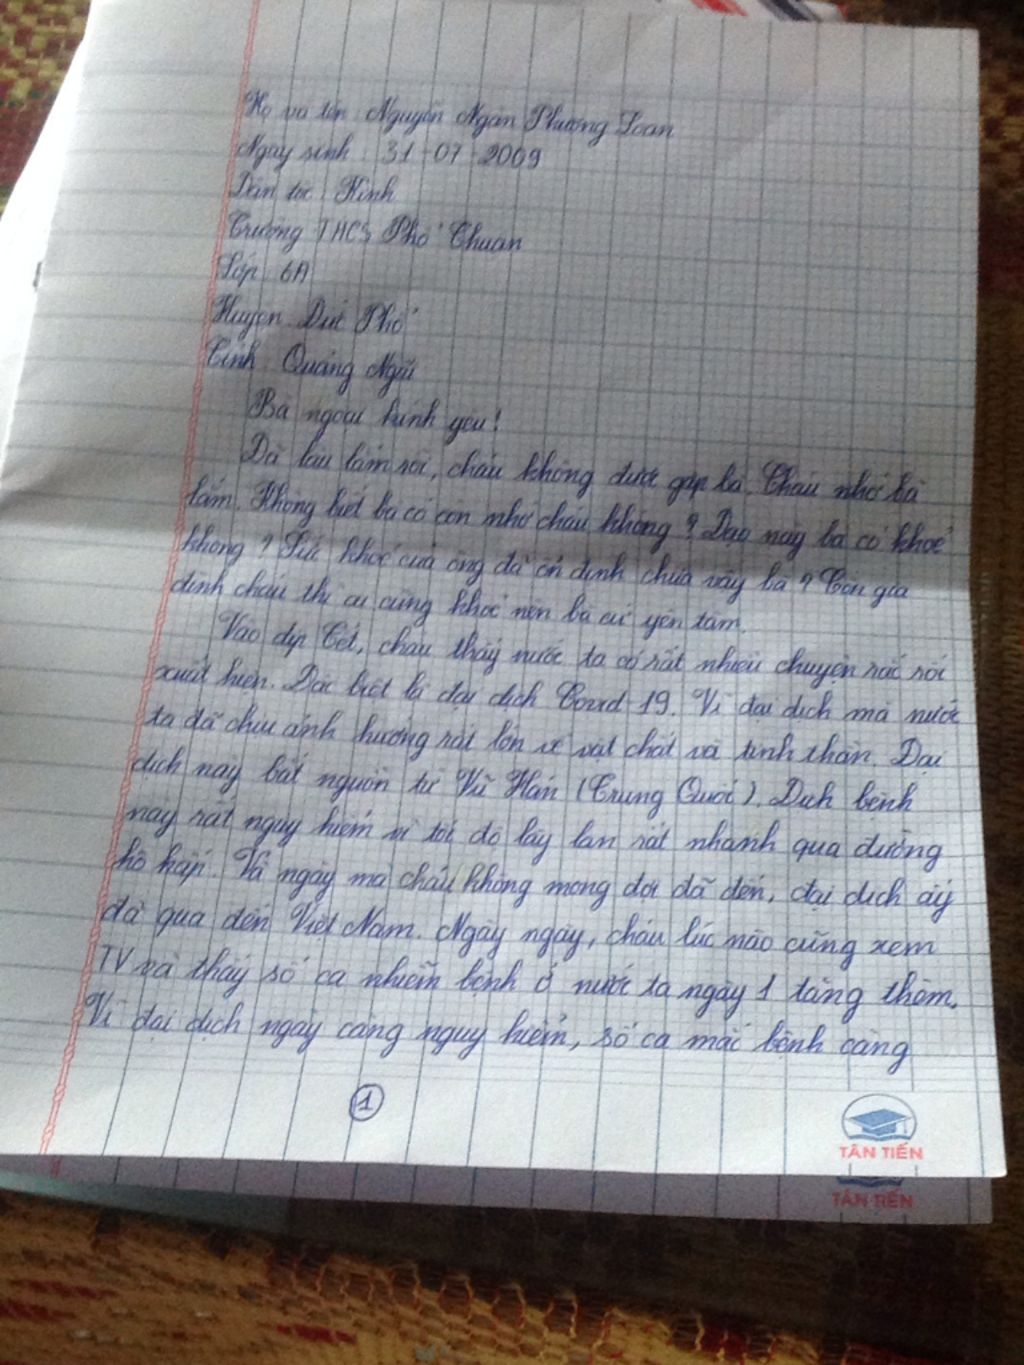 Họ và tên: Nguyễn Ngân Phương Loan
Ngày sinh: 31-07-2009
Dân tộc: Kinh
Trường THCS Phổ Thuận
Lớp: 6A
Huyện: Đức Phổ
Tỉnh: Quảng Ngãi
Bà ngoại kính yêu!
Đã lâu lắm rồi, cháu không được gặp bà. Cháu nhớ bà
lắm. Không biết bà có còn nhớ cháu không? Dạo này bà có khoẻ
không? Sức khoẻ của ông đã ổn định chưa vậy bà? Còn gia
đình cháu thì ai cũng khoẻ nên bà cứ yên tâm.
Vào dịp Tết, cháu thấy nước ta có rất nhiều chuyện rắc rối
xuất hiện. Đặc biệt là đại dịch Covid-19. Vì đại dịch mà nước
ta đã chịu ảnh hưởng rất lớn về vật chất và tinh thần. Đại
dịch này bắt nguồn từ Vũ Hán (Trung Quốc). Dịch bệnh
này rất nguy hiểm vì tốc độ lây lan rất nhanh qua đường
hô hấp. Và ngày mà cháu không mong đợi đã đến, đại dịch ấy
đã qua đến Việt Nam. Ngày ngày, cháu lúc nào cũng xem
TV và thấy số ca nhiễm bệnh ở nước ta ngày 1 tăng thêm.
Vì đại dịch ngày càng nguy hiểm, số ca mắc bệnh càng
1
TÂN TIẾN
TÂN TIẾN